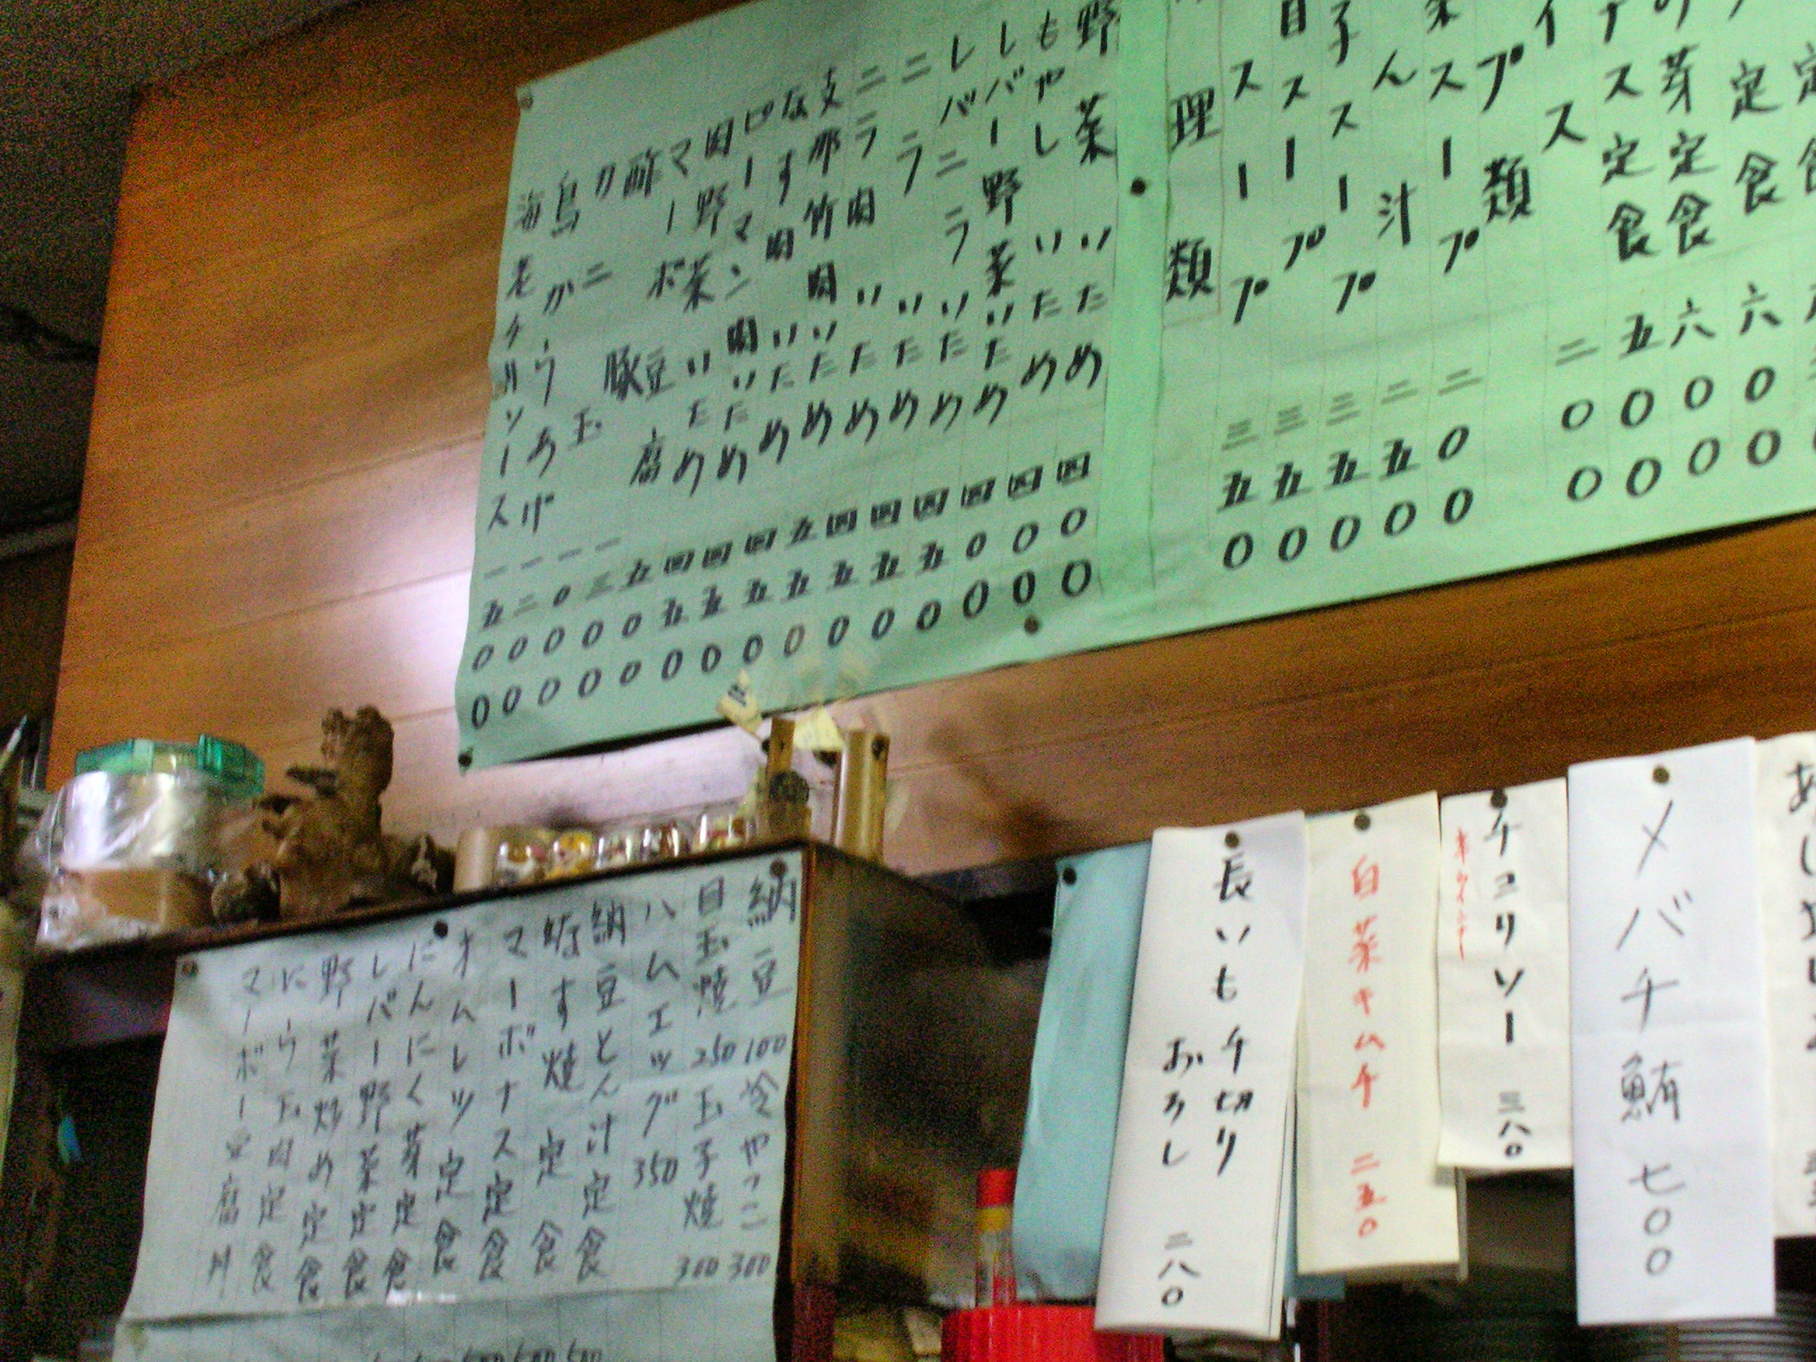 定食 六〇〇
芽定食 六〇〇
ス定食 五〇〇
イス 二〇〇
スープ類
スープ 二〇〇
ん汁 二五〇
子スープ 三五〇
目スープ 三五〇
スープ 三五〇
理類
野菜いため 四〇〇
もやしいため 四〇〇
レバー野菜いため 四〇〇
レバニラいため 四五〇
ニラいため 四五〇
ニラ肉いため 四五〇
支那竹肉いため 五五〇
なす肉いため 四五〇
ピーマン肉いため 四五〇
肉野菜いため 四五〇
マーボ豆腐 五〇〇
酢豚
カニ玉 一〇〇〇
鳥かウあげ 一二〇〇
海老チリソース 一五〇〇
メバチ鮪 七〇〇
チョリソー 三八〇
白菜キムチ 二五〇
長いも千切り
おろし 二八〇
納豆 100 冷やっこ 300
目玉焼 250 玉子焼 300
ハムエッグ 350
納豆とん汁定食
蛎す焼定食
マーボナス定食
オムレツ定食
にんにく芽定食
レバー野菜定食
野菜炒め定食
にウ玉肉定食
マーボー豆腐丼
500 500 500